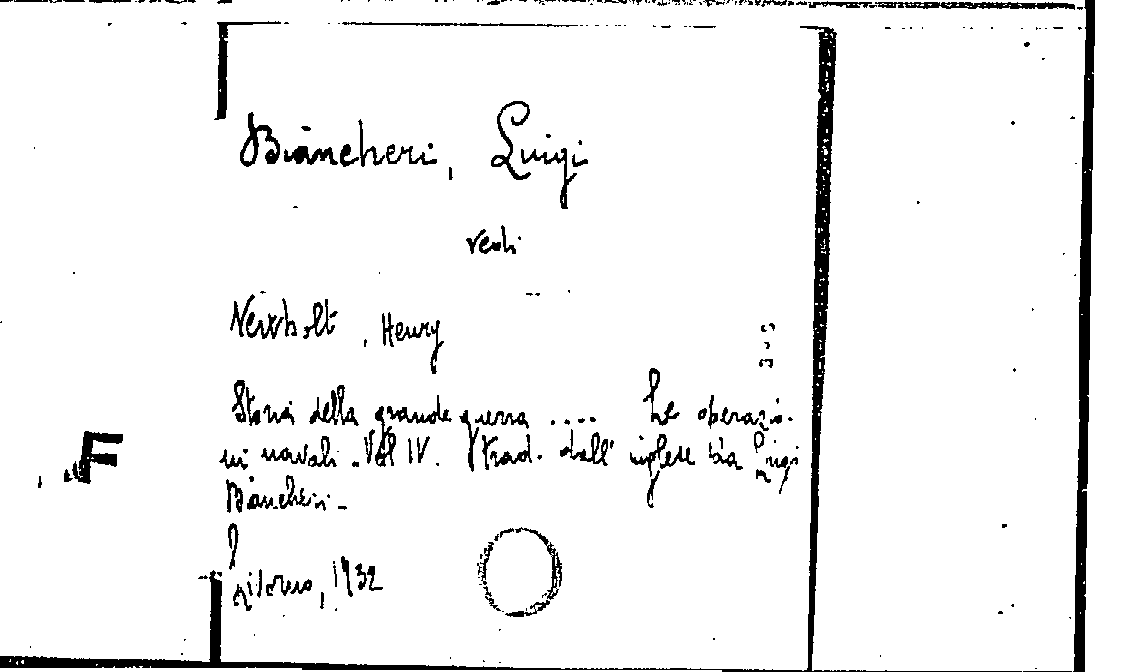 Biancheri, Luigi
vedi
Newbolt, Henry
Storia della grande guerra .... Le operazio-
ni navali. Vol IV. Trad. dall' inglese da Luigi
Biancheri.-
Livorno, 1932
F